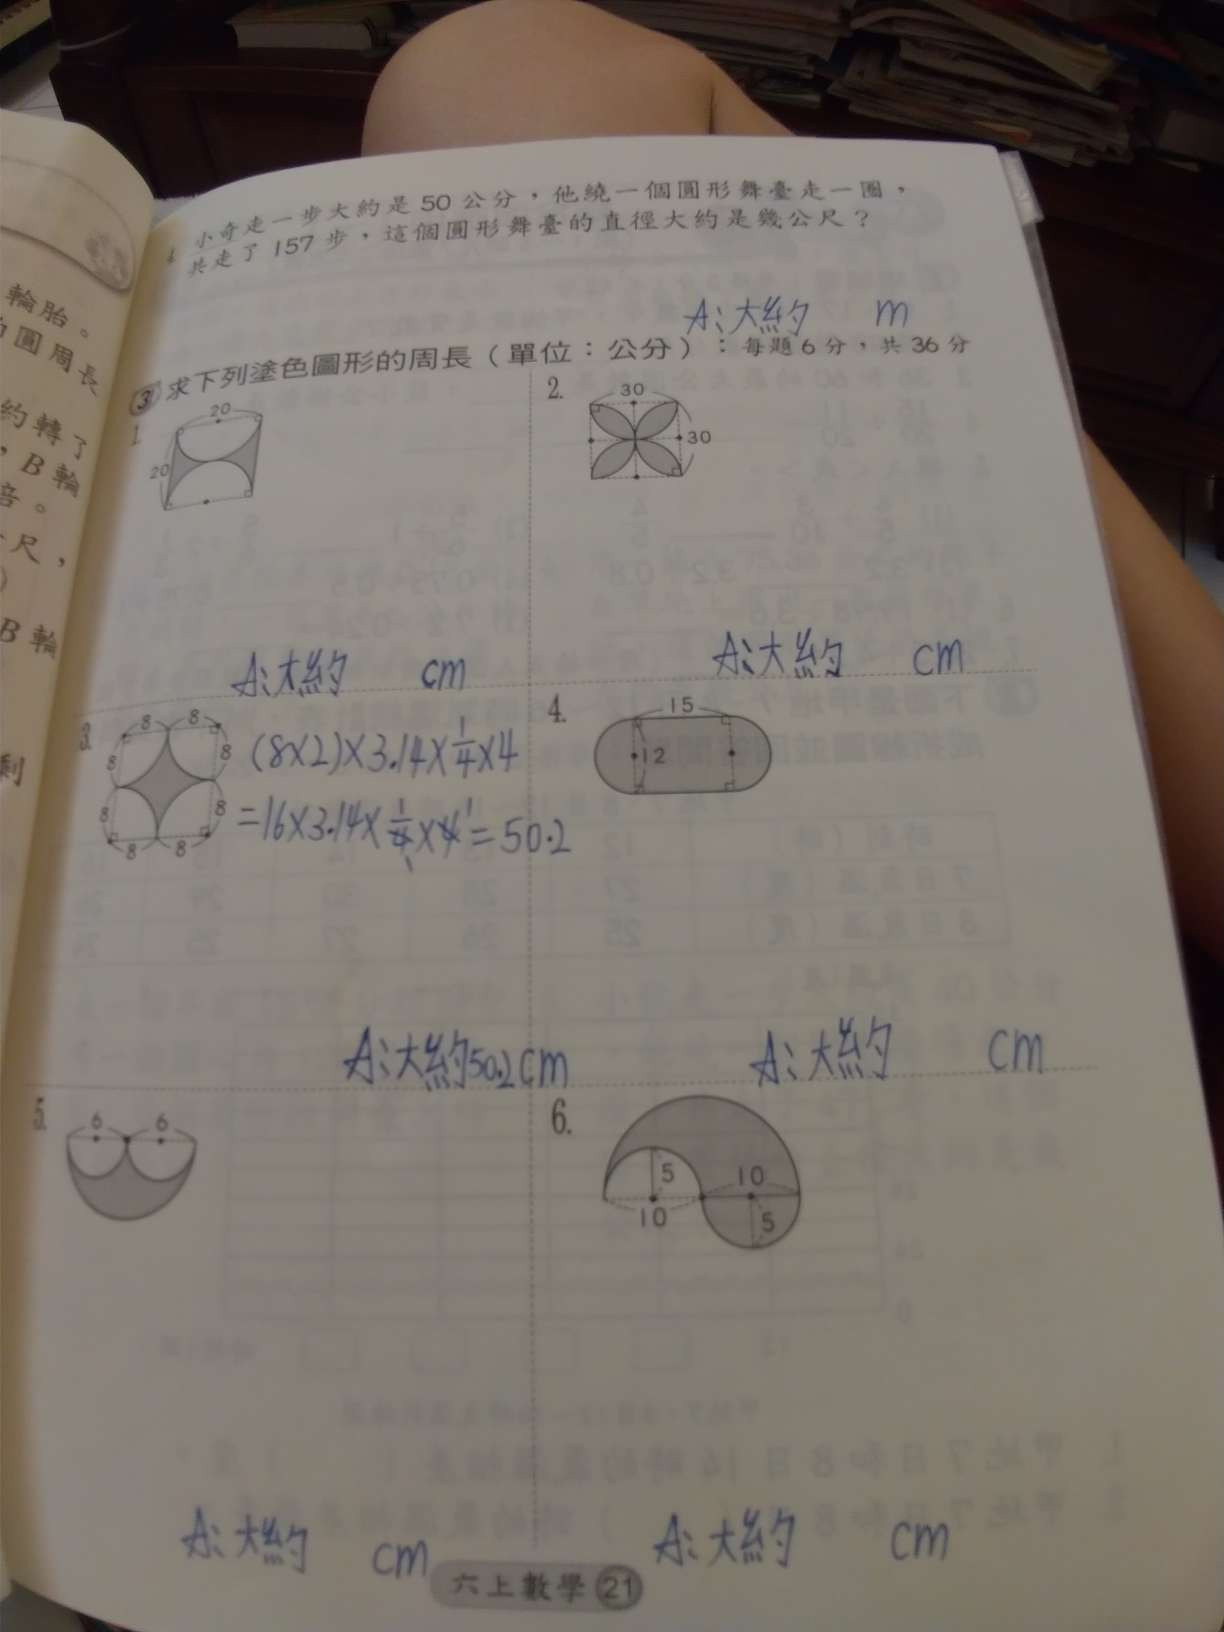 輪胎。
的圓周長
約轉了
，B輪
倍。
尺，
）
B輪
剩
4. 小奇走一步大約是50公分，他繞一個圓形舞臺走一圈，
共走了157步，這個圓形舞臺的直徑大約是幾公尺？
A:大約 m
③求下列塗色圖形的周長（單位：公分）：每題6分，共36分
1.
20
20
A:大約 cm
2.
30
30
A:大約 cm
3.
8 8
8 8
8 8
8 8
(8×2)×3.14×1/4×4
=16×3.14×1/4×4=50.2
A:大約50.2cm
4.
15
12
A:大約 cm
5.
6 6
A:大約 cm
6.
5
10
10
5
A:大約 cm
六上數學 21